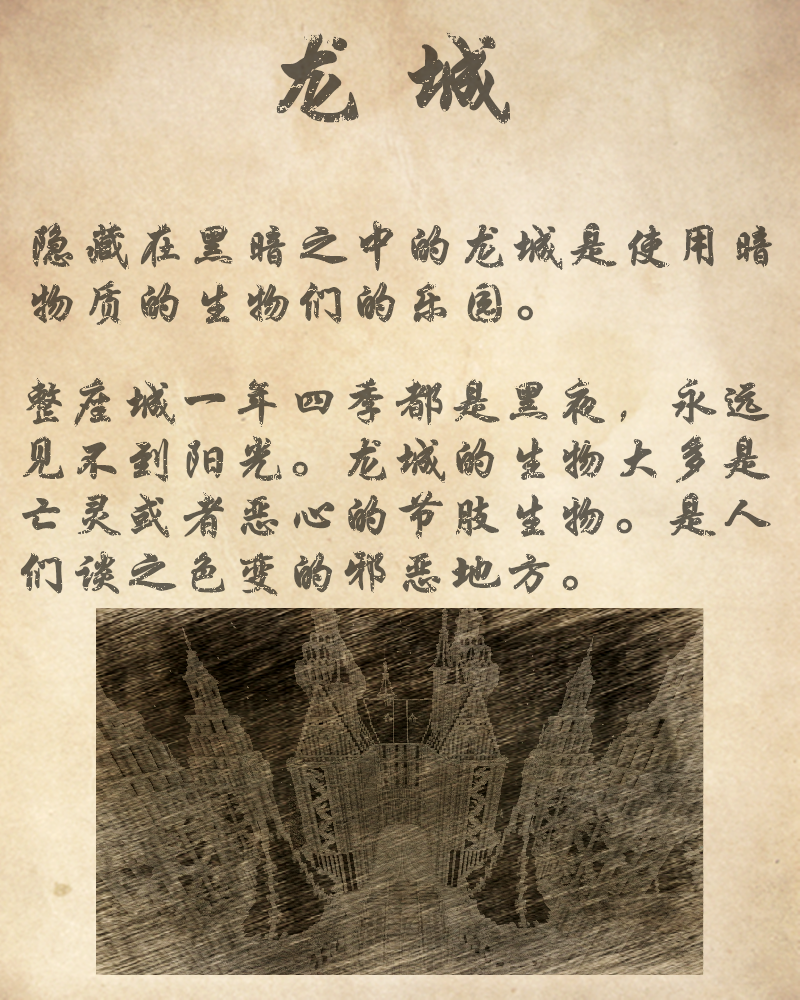 龙城
隐藏在黑暗之中的龙城是使用暗
物质的生物们的乐园。
整座城一年四季都是黑夜，永远
见不到阳光。龙城的生物大多是
亡灵或者恶心的节肢生物。是人
们谈之色变的邪恶地方。